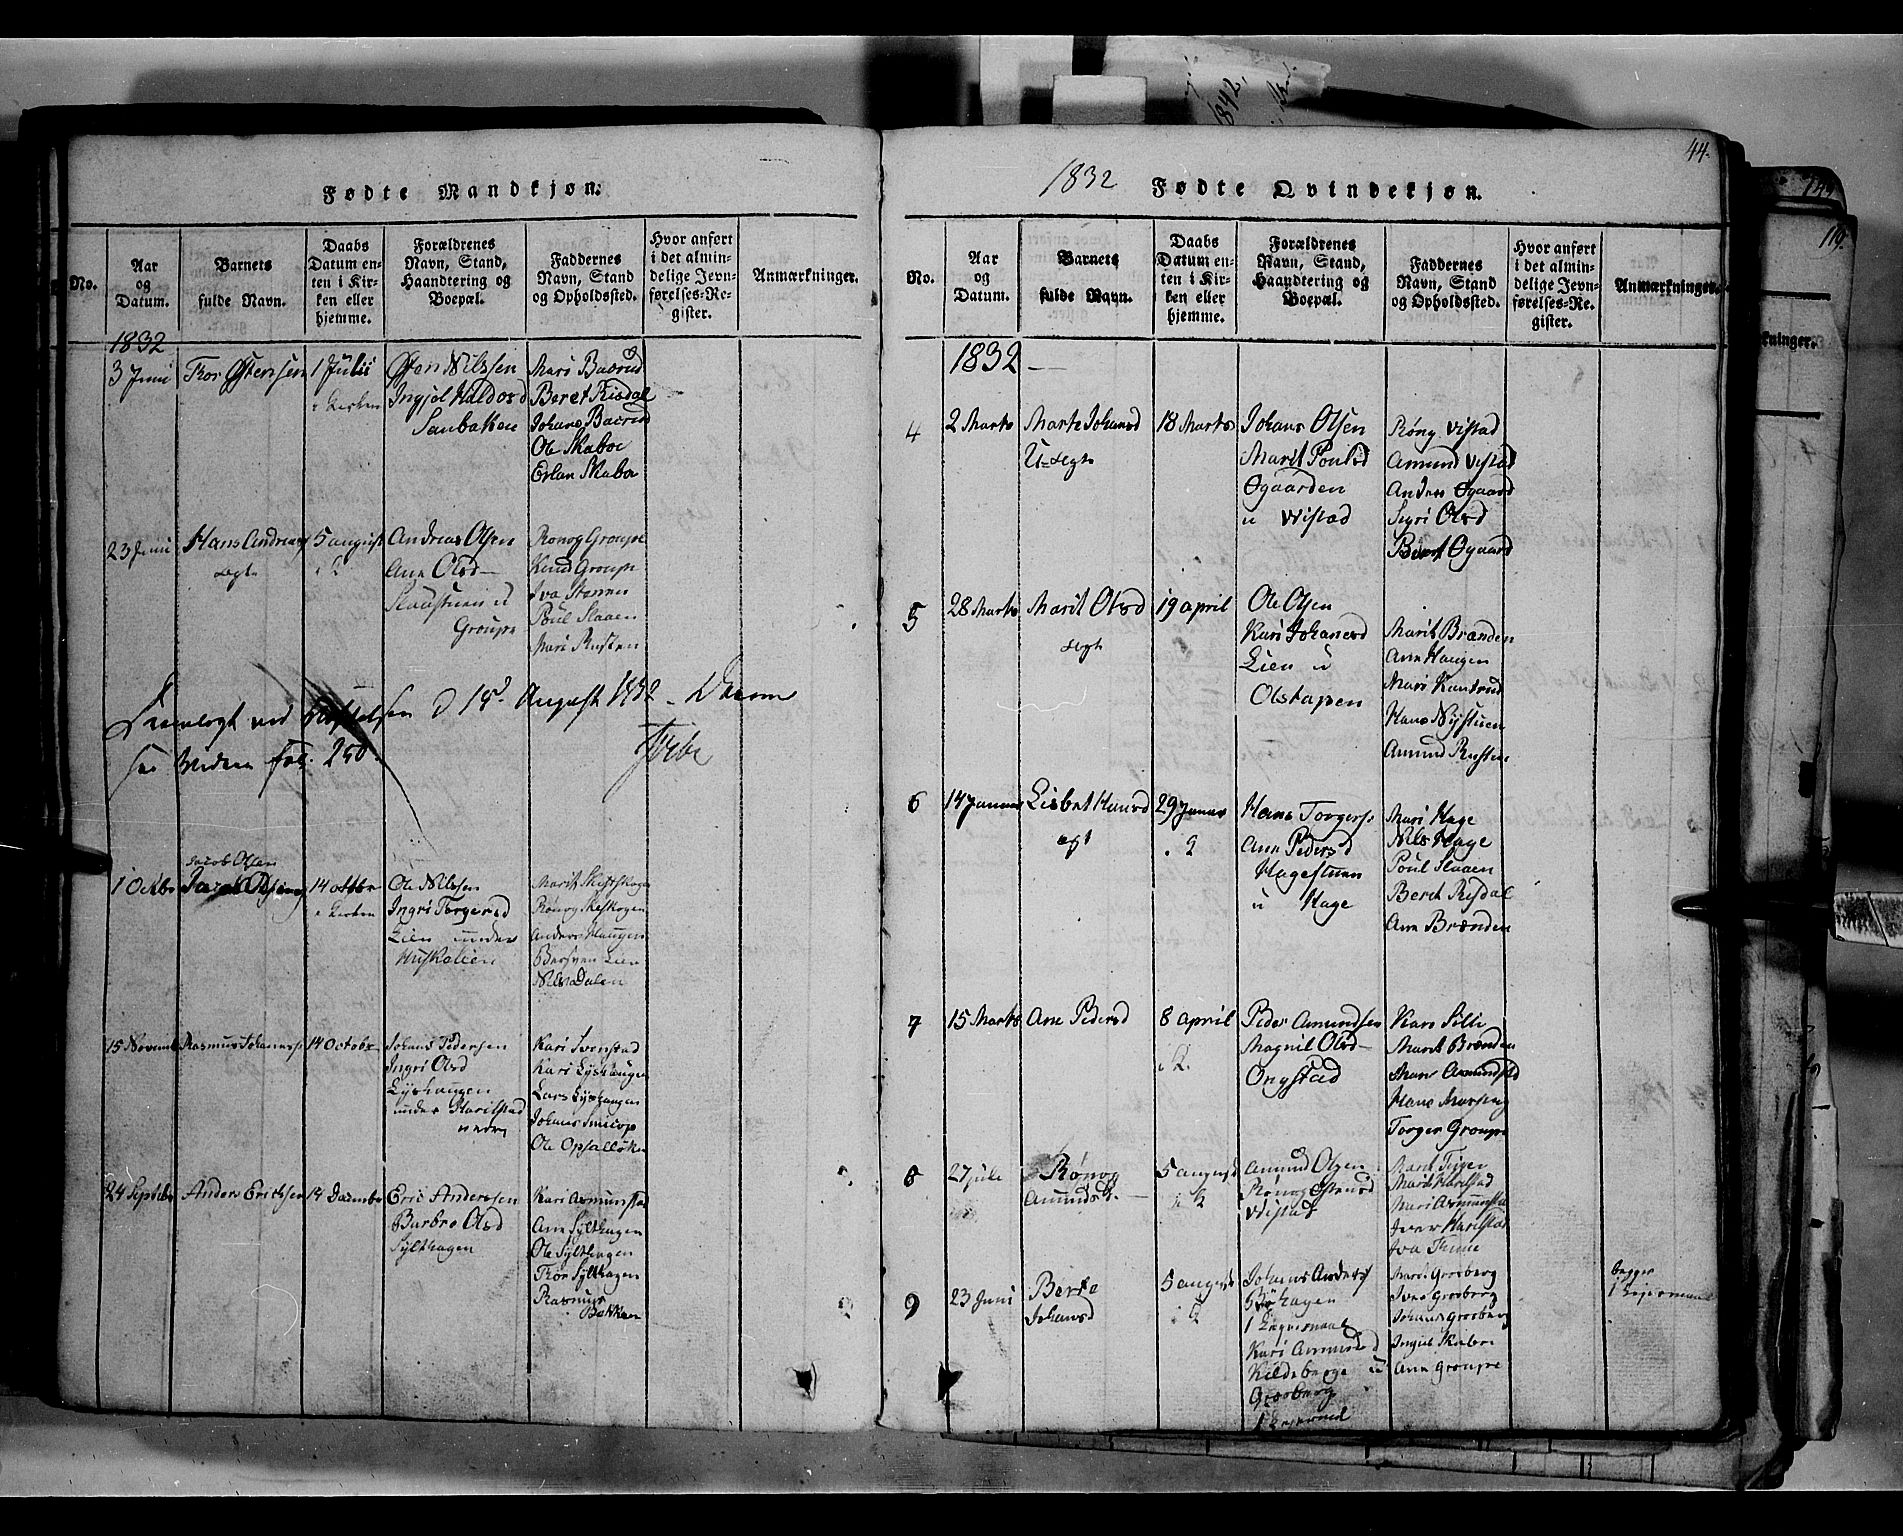 1842,
44.
149
119.
Fødte Mandkjøn.
No.
Aar
og
Datum.
Barnets
fulde Navn.
Daabs
Datum en-
ten i Kir-
ken eller
hjemme.
Forældrenes
Navn, Stand,
Haandtering og
Boepæl.
Faddernes
Navn, Stand
og Opholdssted.
Hvor anført
i det almin-
delige Jevn-
førelses-Re-
gister.
Anmærkninger.
1832
3 Juni
Thor Østensen
1 Julii
i Kirken
Østen Nilssen
Ingjel Haldosd
Sanbakken
Mari Baarud
Beret Risdal
Johans Baarud
Ole Skaboe
Erlan Skaboe
23 Juni
Hans Andreas
ægte
5 august
i K
Andreas Olsen
Ane Olsd
Slaastuen u
Groupe
Rønog Groupe
Knud Groupe
Iva Steinen
Poul Slaaen
Mari Rusten
Fremlagt ved d 18d August 1832
see Fol. 250
1 Octbr
Jacob Olsen
14 octbr
i Kirken
Ole Nilssen
Ingri Torgersd
Lien under
Huskelien
Marit Skeskogen
Rønog Skeskogen
Anders Haugen
Bersven Lien
Nils Dalen
15 Novemb
Rasmus Johansse
14 October
Johans Pedersen
Ingri Olsd
Lyshaugen
under Harilstad
nedre
Kari Svenstad
Kari Lyshaugen
Lars Lyshaugen
Johans
Ole Opsalløken
24 Septebr
Anders Erichsen
14 Decembr
Eric Anderssen
Barbro Olsd
Sylthagen
Kari Asmunstad
Ane Sylthagen
Ole Sylthagen
Thor Sylthagen
Rasmus
Bakken
1832 Fødte Qvindekjøn.
No.
Aar
og
Datum.
Barnets
fulde Navn.
Daabs
Datum en-
ten i Kir-
ken eller
hjemme.
Forældrenes
Navn, Stand,
Haandtering og
Boepæl.
Faddernes
Navn, Stand
og Opholdssted.
Hvor anført
i det almin-
delige Jevn-
førelses-Re-
gister.
Anmærkninger.
1832
4
2 Marts
Marte Johansd
U-ægte
18 Marts
Johans Olsen
Marit Poulsd
Øgaarden
u Vistad
Røny Vistad
Amund Vistad
Anders Øgaard
Sigri Olsd
Beret Øgaard
5
28 Marts
Marit Olsd
ægte
19 april
Ole Olsen
Kari Johanesd
Lien u
Olstapen
Marit Brænden
Ane Haugen
Mari Kamrud
Hans Nystuen
Amund Rusten
6
14 Januar
Lisbet Hansd
ægt
29 Januar
i K
Hans Torgerse
Ane Pedersd
Hagestuen
u Hage
Mari Hage
Nils Hage
Poul Slaaen
Beret Risdal
Ane Brænden
7
15 Marts
Ane Pedersd
8 april
i K.
Peder Amundsen
Magnil Olsd
Ongstad
Kari Sille
Marit Brænden
Mari Asmundstad
Hans
Torger Groupe
8
27 Juli
Rønog
Amundsd.
5 august
i K
Amund Olsen
Rønog Østensd
Vistad
Marit
Marit Harilstad
Mari Asmunstad
Iver Harilstad
Iva
9
23 Juni
Berte
Johansd
5 august
i K
Johans Anderss
Bøhagen
1 Leiermaal
Kari Amunsd
Kildeberge u
Grosberg
1 Leiermaal
Marit Grosberg
Iver Grosberg
Johans Grosberg
Ingeb Skaboe
Ane Groupe
begges
1 Leiermaal